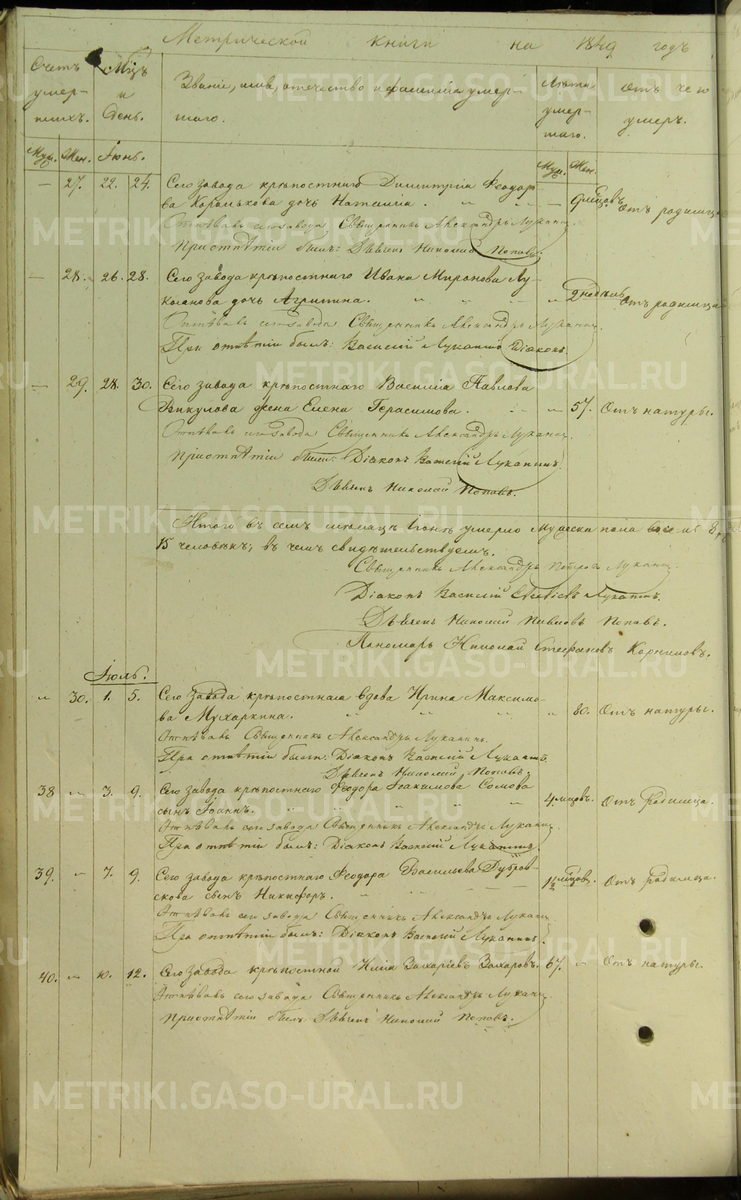 Метрической книги на 1849 годъ
Счетъ умер-шихъ. Мцъ и день. Званіе, имя, отечество и фамилія умер-шаго. Лѣта умер-шаго. Отъ чего умеръ.
Муж. Жен. Іюнь. Муж. Жен.
— 27. 22. 24. Сего завода крѣпостнаго Димитрія Феодоро-
ва Королькова дочь Наталія. " " – 9 мѣсцовъ Отъ родимца
Отпѣвалъ сего завода Священникъ Александръ Луканинъ
При отпѣтіи былъ: Дьячекъ Николай Поповъ.
— 28. 26. 28. Сего завода крѣпостнаго Ивана Миронова Лу-
канова дочь Агрипина. " " – 2 недѣль Отъ родимца
Отпѣвалъ сего завода Священникъ Александръ Луканинъ.
При отпѣтіи былъ: Василій Луканинъ Діаконъ.
— 29. 28. 30. Сего завода крѣпостнаго Василія Павлова
Викулова жена Елена Герасимова. – 57. Отъ натуры.
Отпѣвалъ сего завода Священникъ Александръ Луканинъ.
При отпѣтіи были: Діаконъ Василій Луканинъ.
Дьячекъ Николай Поповъ.
Итого въ семъ мѣсяцѣ Іюнѣ умерло мужеска пола
15 человѣкъ; въ чемъ свидѣтельствуемъ.
Священникъ Александръ Петровъ Луканинъ
Діаконъ Василій Луканинъ.
Дьячекъ Николай Павловъ Поповъ.
Пономарь Николай Стефановъ Корниловъ.
Іюль.
" 30. 1. 5. Сего завода крѣпостная вдова Ирина Максимо-
ва Мухаркина. " " " 80. Отъ натуры.
Отпѣвалъ Священникъ Александръ Луканинъ.
При отпѣтіи были: Діаконъ Василій Луканинъ
Дьячекъ Николай Поповъ.
38 – 3. 9. Сего завода крѣпостнаго Феодора Іоакимова Сомова
сынъ Іоаннъ. " " 4 мѣсцовъ. Отъ родимца.
Отпѣвалъ сего завода Священникъ Александръ Луканинъ
При отпѣтіи былъ: Діаконъ Василій Луканинъ.
39. – 7. 9. Сего завода крѣпостнаго Феодора Васильева Дубров-
скова сынъ Никифоръ. – 1½ мѣсцовъ. Отъ родимца.
Отпѣвалъ сего завода Священникъ Александръ Луканинъ
При отпѣтіи былъ: Діаконъ Василій Луканинъ.
40. – 10. 12. Сего завода крѣпостной Илія Захаріевъ Захаровъ. 67. – Отъ натуры.
Отпѣвалъ сего завода Священникъ Александръ Луканинъ
При отпѣтіи былъ Дьячекъ Николай Поповъ.
METRIKI.GASO-URAL.RU